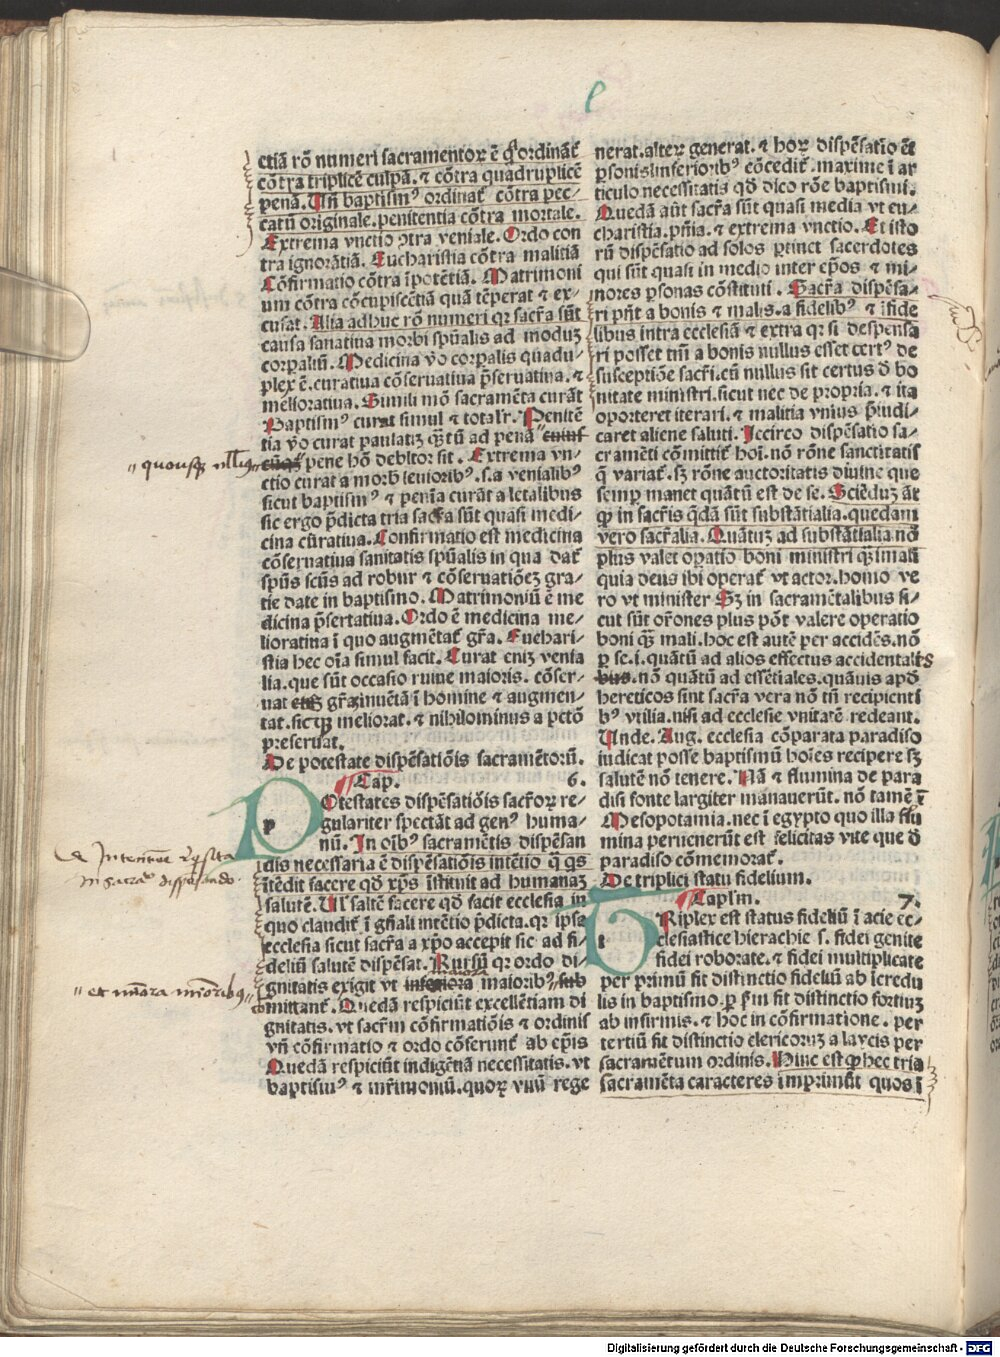 e
ctiã rõ numeri sacramentoꝝ ē q̇ ordinãt̃
cõtra triplicẽ culpã. ⁊ cõtra quadruplicẽ
penã. Uñ baptism⁹ ordinat̃ cõtra pec-
catũ originale. penitentia cõtra mortale.
Extrema vnctio ꝯtra veniale. Ordo con
tra ignorãtiã. Eucharistia cõtra maliciã
Cõfirmatio cõtra ĩpotẽtiã. Matrimoni
um cõtra cõcupiscẽtiã quã tẽperat ⁊ ex-
cusat. Alia adhuc rõ numeri qꝛ sacr̃a sũt
causa sanatiua morbi spũalis ad moduꝫ
corꝑaliũ. Medicina ṽo corꝑalis quadu-
plex ẽ. curatiua cõseruatiua p̃seruatiua. ⁊
meliorativa. Simili mõ sacramẽta curãt
Baptism⁹ curat simul ⁊ totalr̃. Penitẽ
tia ṽo curat paulatiꝫ q̃ꝫtũ ad penã cuius
cũqꝫ pene hõ debitor sit. Extrema vn-
ctio curat a morb leuiorib⁹. s. a venialib⁹
sicut baptism⁹ ⁊ penr̃ia curãt a letalibus
sic ergo p̃dicta tria sacr̃a sũt quasi medi-
cina curatiua. Confirmatio est medicina
cõseruatiua sanitatis spũalis in qua dat̃
spũs scũs ad robur ⁊ cõseruatiõeꝫ gra-
tie date in baptismo. Matrimoniũ ẽ me
dicina p̃seruatiua. Ordo ẽ medicina me-
lioratina ĩ quo augmẽtat̃ gr̃a. Euchari-
stia hec oĩa simul facit. Curat eniꝫ venia
lia. que sũt occasio ruine maioris. cõser-
uat eniꝫ gr̃aꝫ inuẽtã ĩ homine ⁊ augmen-
tat. sicqꝫ meliorat. ⁊ nihilominus a pctõ
preseruat.
De potestate dispẽsatiõis sacramẽtorũ.
Cap. 6.
POtestates dispẽsatiõis sacr̃oꝝ re-
gulariter spectãt ad gen⁹ huma-
nũ. In oĩb⁹ sacramẽtis dispẽsan
dis necessaria ẽ dispẽsatiõis intẽtio q̃ qs
ĩtẽdit facere qd̃ xp̃s ĩstituit ad humanaꝫ
salutẽ. Ul̃ saltẽ facere qd̃ facit ecclesia in
quo claudit̃ ĩ gñali intẽtio p̃dicta. qꝛ ipsa
ecclesia sicut sacr̃a a xp̃o accepit sic ad fi-
deliũ salutẽ dispẽsat. Rursũ qꝛ ordo di-
gnitatis exigit vt inferiora maiorib⁹ sub
mittant̃. Quedã respiciũt excellẽtiam di
gnitatis. vt sacr̃m cõfirmatiõis ⁊ ordinis
vñ cõfirmatio ⁊ ordo cõferunt̃ ab ep̃is
Quedã respiciũt indigẽtiã necessitatis. vt
baptism⁹ ⁊ mr̃imoniũ. quoꝝ vnũ rege
nerat. alteꝝ generat. ⁊ hoꝝ dispẽsatio ẽt
ꝑsonis inferiorib⁹ cõcedit̃. maxime ĩ ar
ticulo necessitatis qd̃ dico rõe baptismi.
Quedã aũt sacr̃a sũt quasi media vt eu-
charistia. pñia. ⁊ extrema vnctio. Et isto
rũ dispẽsatio ad solos ꝑtinet sacerdotes
qui sũt quasi in medio inter ep̃os ⁊ mi-
nores ꝑsonas cõstituti. Sacr̃a dispẽsa-
ri pñt a bonis ⁊ malis. a fidelib⁹ ⁊ ĩfide
libus intra ecclesiã ⁊ extra qꝛ si despensa
ri posset tm̃ a bonis nullus esset cert⁹ de
susceptiõe sacr̃i. cũ nullus sit certus d̃ bo
nitate ministri. sicut nec de propria. ⁊ ita
oporteret iterari. ⁊ malitia vnius p̃iudi-
caret aliene saluti. Iccirco dispẽsatio sa-
cramẽti cõmittit̃ hoĩ. nõ rõne sanctitatis
q̃ variat̃. sꝫ rõne auctoritatis diuine que
semꝑ manet quãtũ est de se. Sciẽduꝫ ãt
ꝙ in sacr̃is q̃dã sũt substãtialia. quedam
vero sacr̃alia. Quãtuꝫ ad substãtialia nõ
plus valet oꝑatio boni ministri q̃ꝫ mali
quia deus ibi operat̃ vt actor. homo ve
ro vt minister Sꝫ in sacramẽtalibus si-
cut sũt or̃ones plus põt valere operatio
boni q̃ꝫ mali. hoc est autẽ per accidẽs. nõ
ꝑ se. i. quãtũ ad alios effectus accidentales
bus. nõ quãtũ ad essẽtiales. quãuis apd̃
hereticos sint sacr̃a vera nõ tñ recipienti
b⁹ vtilia. nisi ad ecclesie vnitatẽ redeant.
Unde. Aug. ecclesia cõparata paradiso
iudicat posse baptismũ hoĩes recipere sꝫ
salutẽ nõ tenere. Nã ⁊ flumina de para
disi fonte largiter manauerũt. nõ tamẽ ĩ
Mesopotamia. nec ĩ egypto quo illa flu
mina peruenerũt est felicitas vite que d̃
paradiso cõmemorat̃.
De triplici statu fidelium.
Capl̃m. 7.
TRiplex est status fideliũ ĩ acie ec-
clesiastice hierachie s. fidei genite
fidei roborate. ⁊ fidei multiplicate
per primũ fit distinctio fideliũ ab ĩcredu
lis in baptismo. ꝑ sm̃ fit distinctio fortiuꝫ
ab infirmis. ⁊ hoc in cõfirmatione. per
tertiũ fit distinctio clericoruꝫ a laycis per
sacramẽtum ordinis. Hinc est ꝙ hec tria
sacramẽta caracteres ĩprimũt quos ĩ
quousqꝫ
de Intentione
in sacr̃a dispẽsando.
et minora minoribus
Digitalisierung gefördert durch die Deutsche Forschungsgemeinschaft - DFG